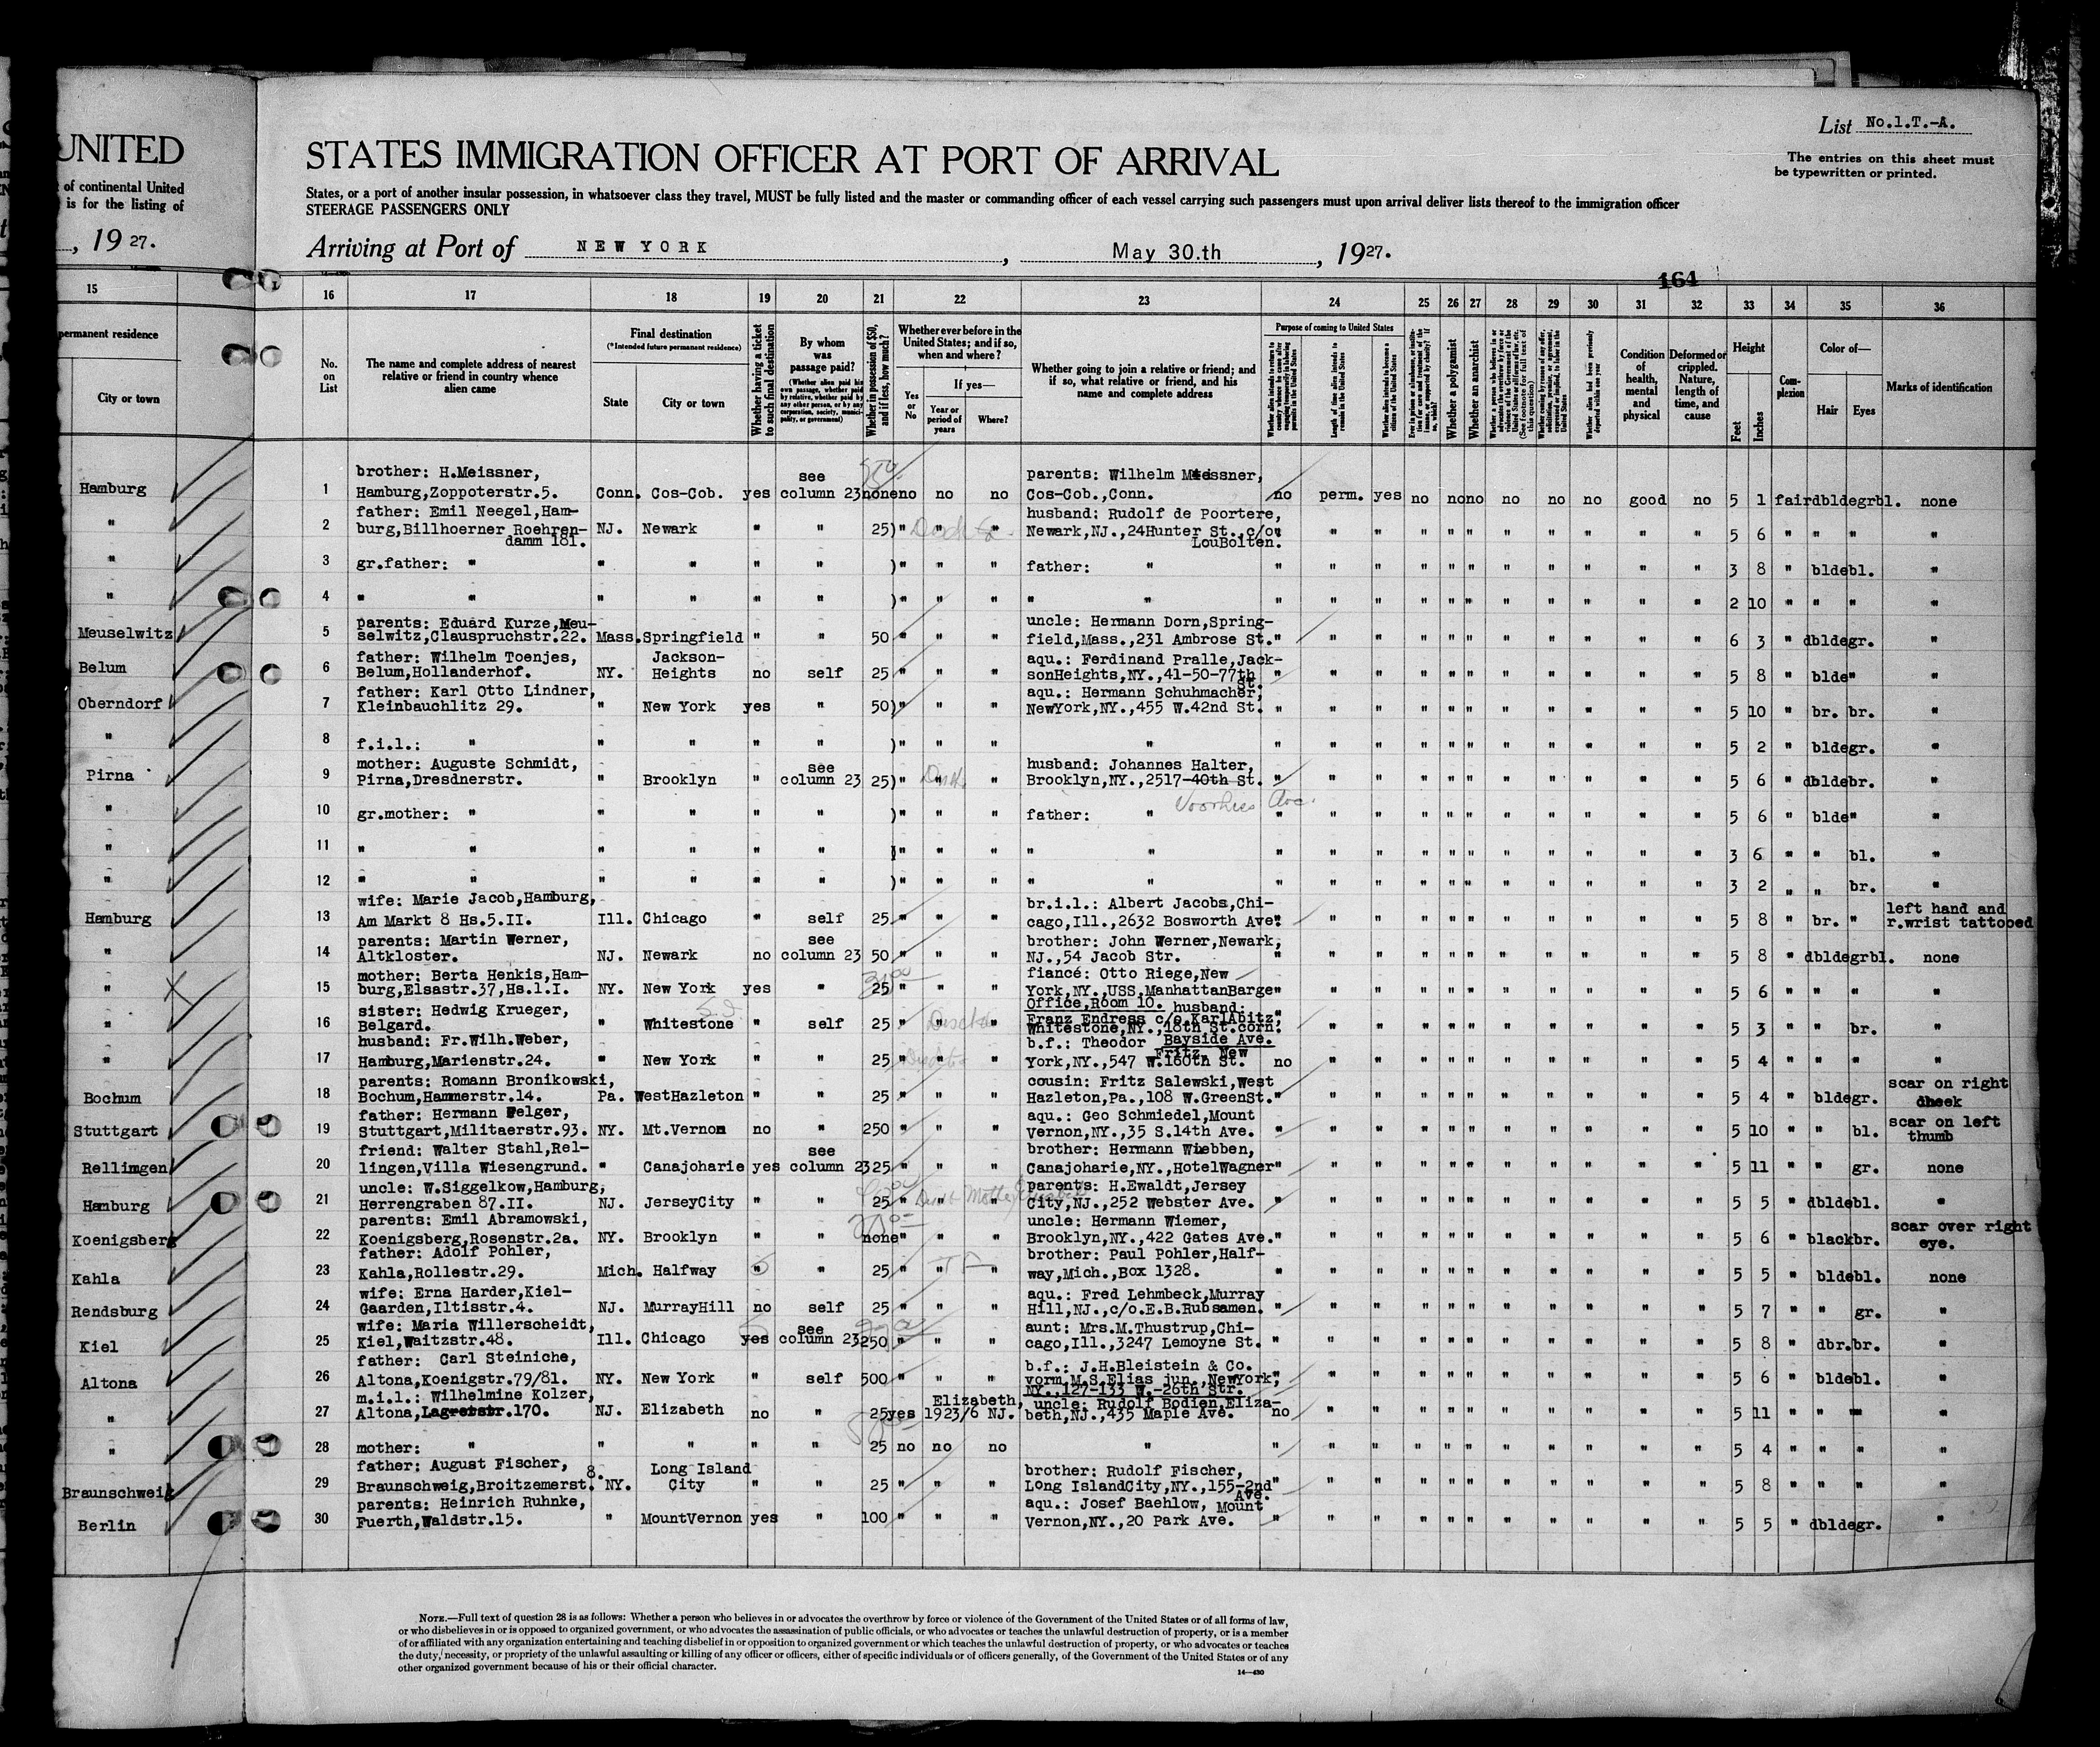 UNITED
of continental United
is for the listing of
, 1927.
15
permanent residence
City or town
Hamburg
"
"
"
Meuselwitz
Belum
Oberndorf
"
Pirna
"
"
"
Hamburg
"
"
"
"
Bochum
Stuttgart
Rellingen
Hamburg
Koenigsberg
Kahla
Rendsburg
Kiel
Altona
"
"
Braunschweig
Berlin
List No.1.T.-A.
The entries on this sheet must
be typewritten or printed.
STATES IMMIGRATION OFFICER AT PORT OF ARRIVAL
States, or a port of another insular possession, in whatsoever class they travel, MUST be fully listed and the master or commanding officer of each vessel carrying such passengers must upon arrival deliver lists thereof to the immigration officer
STEERAGE PASSENGERS ONLY
Arriving at Port of NEW YORK, May 30.th, 1927.
164
16 17 18 19 20 21 22 23 24 25 26 27 28 29 30 31 32 33 34 35 36
No. on List
The name and complete address of nearest relative or friend in country whence alien came
Final destination
(*Intended future permanent residence)
State
City or town
Whether having a ticket to such final destination
By whom was passage paid?
(Whether alien paid his own passage, whether paid by relative, whether paid by any other person, or by any corporation, society, municipality, or government)
Whether in possession of $50, and if less, how much?
Whether ever before in the United States; and if so, when and where?
Yes or No
If yes—
Year or period of years
Where?
Whether going to join a relative or friend; and if so, what relative or friend, and his name and complete address
Purpose of coming to United States
Length of time alien intends to remain in the United States
Whether alien intends to become a citizen of the United States
Whether a polygamist
Whether an anarchist
Whether alien had been previously deported within one year
Condition of health, mental and physical
Deformed or crippled. Nature, length of time, and cause
Height
Feet
Inches
Complexion
Color of—
Hair
Eyes
Marks of identification
1 brother: H.Meissner, Hamburg,Zoppoterstr.5. Conn. Cos-Cob. yes see column 23 none no no no parents: Wilhelm Meissner, Cos-Cob.,Conn. no perm. yes no no no no no no good no 5 1 fair dblde grbl. none
2 father: Emil Neegel,Hamburg,Billhoerner Roehrendamm 181. NJ. Newark " " 25) " " " husband: Rudolf de Poortere, Newark,NJ.,24Hunter St.,c/o LouBolten. " " " " " " " " " " " 5 6 " " " "
3 gr.father: " " " " " ) " " " father: " " " " " " " " " " " " 3 8 " blde bl. "
4 " " " " " " ) " " " " " " " " " " " " " " " " 2 10 " " " "
5 parents: Eduard Kurze,Meuselwitz,Clauspruchstr.22. Mass. Springfield " " 50 " " " uncle: Hermann Dorn,Springfield,Mass.,231 Ambrose St. " " " " " " " " " " " 6 3 " dblde gr. "
6 father: Wilhelm Toenjes, Belum,Hollanderhof. NY. Jackson-Heights no self 25 " " " aqu.: Ferdinand Pralle,JacksonHeights,NY.,41-50-77th St. " " " " " " " " " " " 5 8 " blde " "
7 father: Karl Otto Lindner, Kleinbauchlitz 29. " New York yes " 50) " " " aqu.: Hermann Schuhmacher, NewYork,NY.,455 W.42nd St. " " " " " " " " " " " 5 10 " br. br. "
8 f.i.l.: " " " " " ) " " " " " " " " " " " " " " " 5 2 " blde gr. "
9 mother: Auguste Schmidt, Pirna,Dresdnerstr. " Brooklyn " see column 23 25) " " " husband: Johannes Halter, Brooklyn,NY.,2517-40th St. " " " " " " " " " " " 5 6 " dblde br. "
Voorhies Ave.
10 gr.mother: " " " " " ) " " " father: " " " " " " " " " " " " 5 6 " blde " "
11 " " " " " " ) " " " " " " " " " " " " " " " " 3 6 " " bl. "
12 " " " " " " ) " " " " " " " " " " " " " " " " 3 2 " " br. "
13 wife: Marie Jacob,Hamburg, Am Markt 8 Hs.5.II. Ill. Chicago " self 25 " " " br.i.l.: Albert Jacobs,Chicago,Ill.,2632 Bosworth Ave. " " " " " " " " " " " 5 8 " br. " left hand and r.wrist tattooed
14 parents: Martin Werner, Altkloster. NJ. Newark no see column 23 50 " " " brother: John Werner,Newark, NJ.,54 Jacob Str. " " " " " " " " " " " 5 8 " dblde grbl. none
15 mother: Berta Henkis,Hamburg,Elsastr.37,Hs.1.I. NY. New York yes " 25 " " " fiancé: Otto Riege,New York,NY.,USS.ManhattanBarge Office,Room 10. " " " " " " " " " " " 5 6 " " " "
16 sister: Hedwig Krueger, Belgard. " Whitestone " self 25 " " " husband: Franz Endress c/o.KarlAbitz, Whitestone,NY.,18th St.corn. Bayside Ave. " " " " " " " " " " " 5 3 " " br. "
17 husband: Fr.Wilh.Weber, Hamburg,Marienstr.24. " New York " " 25 " " " b.f.: Theodor Fritz, New York,NY.,547 W.160th St. no " " " " " " " " " " 5 4 " " " "
18 parents: Romann Bronikowski, Bochum,Hammerstr.14. Pa. WestHazleton " " 25 " " " cousin: Fritz Salewski,West Hazleton,Pa.,108 W.GreenSt. " " " " " " " " " " " 5 4 " blde gr. scar on right cheek
19 father: Hermann Pelger, Stuttgart,Militaerstr.93. NY. Mt.Vernon no " 250 " " " aqu.: Geo Schmiedel,Mount Vernon,NY.,35 S.14th Ave. " " " " " " " " " " " 5 10 " " bl. scar on left thumb
20 friend: Walter Stahl,Rellingen,Villa Wiesengrund. " Canajoharie yes see column 23 25 " " " brother: Hermann Wiebben, Canajoharie,NY.,HotelWagner " " " " " " " " " " " 5 11 " " gr. none
21 uncle: W.Siggelkow,Hamburg, Herrengraben 87.II. NJ. JerseyCity " " 25 " " " parents: H.Ewaldt,Jersey City,NJ.,252 Webster Ave. " " " " " " " " " " " 5 5 " dblde bl. "
22 parents: Emil Abramowski, Koenigsberg,Rosenstr.2a. NY. Brooklyn " " none " " " uncle: Hermann Wiemer, Brooklyn,NY.,422 Gates Ave. " " " " " " " " " " " 5 6 " black br. scar over right eye.
23 father: Adolf Pohler, Kahla,Rollestr.29. Mich. Halfway " " 25 " " " brother: Paul Pohler,Halfway,Mich.,Box 1328. " " " " " " " " " " " 5 5 " blde bl. none
24 wife: Erna Harder,Kiel-Gaarden,Iltisstr.4. NJ. MurrayHill no self 25 " " " aqu.: Fred Lehmbeck,Murray Hill,NJ.,c/o.E.B.Rubsamen. " " " " " " " " " " " 5 7 " " gr. "
25 wife: Maria Willerscheidt, Kiel,Waitzstr.48. Ill. Chicago yes see column 23 250 " " " aunt: Mrs.M.Thustrup,Chicago,Ill.,3247 Lemoyne St. " " " " " " " " " " " 5 8 " dbr. br. "
26 father: Carl Steiniche, Altona,Koenigstr.79/81. NY. New York " self 500 " " " b.f.: J.H.Bleistein & Co. vorm.M.S.Elias jun.,NewYork, NY.,127-133 W.-26th Str. " " " " " " " " " " " 5 6 " blde bl. "
27 m.i.l.: Wilhelmine Kolzer, Altona, 170. NJ. Elizabeth no " 25 yes 1923/6 Elizabeth, NJ. uncle: Rudolf Bodien,Elizabeth,NJ.,435 Maple Ave. no " " " " " " " " " " 5 11 " " " "
28 mother: " " " " " 25 no no no " " " " " " " " " " " " 5 4 " " " "
29 father: August Fischer, Braunschweig,Broitzemerst. 8. NY. Long Island City " " 25 " " " brother: Rudolf Fischer, Long IslandCity,NY.,155-2nd Ave. " " " " " " " " " " " 5 8 " " " "
30 parents: Heinrich Ruhnke, Fuerth,Waldstr.15. " MountVernon yes " 100 " " " aqu.: Josef Baehlow, Mount Vernon,NY.,20 Park Ave. " " " " " " " " " " " 5 5 " dblde gr. "
NOTE.—Full text of question 28 is as follows: Whether a person who believes in or advocates the overthrow by force or violence of the Government of the United States or of all forms of law,
or who disbelieves in or is opposed to organized government, or who advocates the assassination of public officials, or who advocates or teaches the unlawful destruction of property, or is a member
of or affiliated with any organization entertaining and teaching disbelief in or opposition to organized government or which teaches the unlawful destruction of property, or who advocates or teaches
the duty, necessity, or propriety of the unlawful assaulting or killing of any officer or officers, either of specific individuals or of officers generally, of the Government of the United States or of any
other organized government because of his or their official character.
14—430